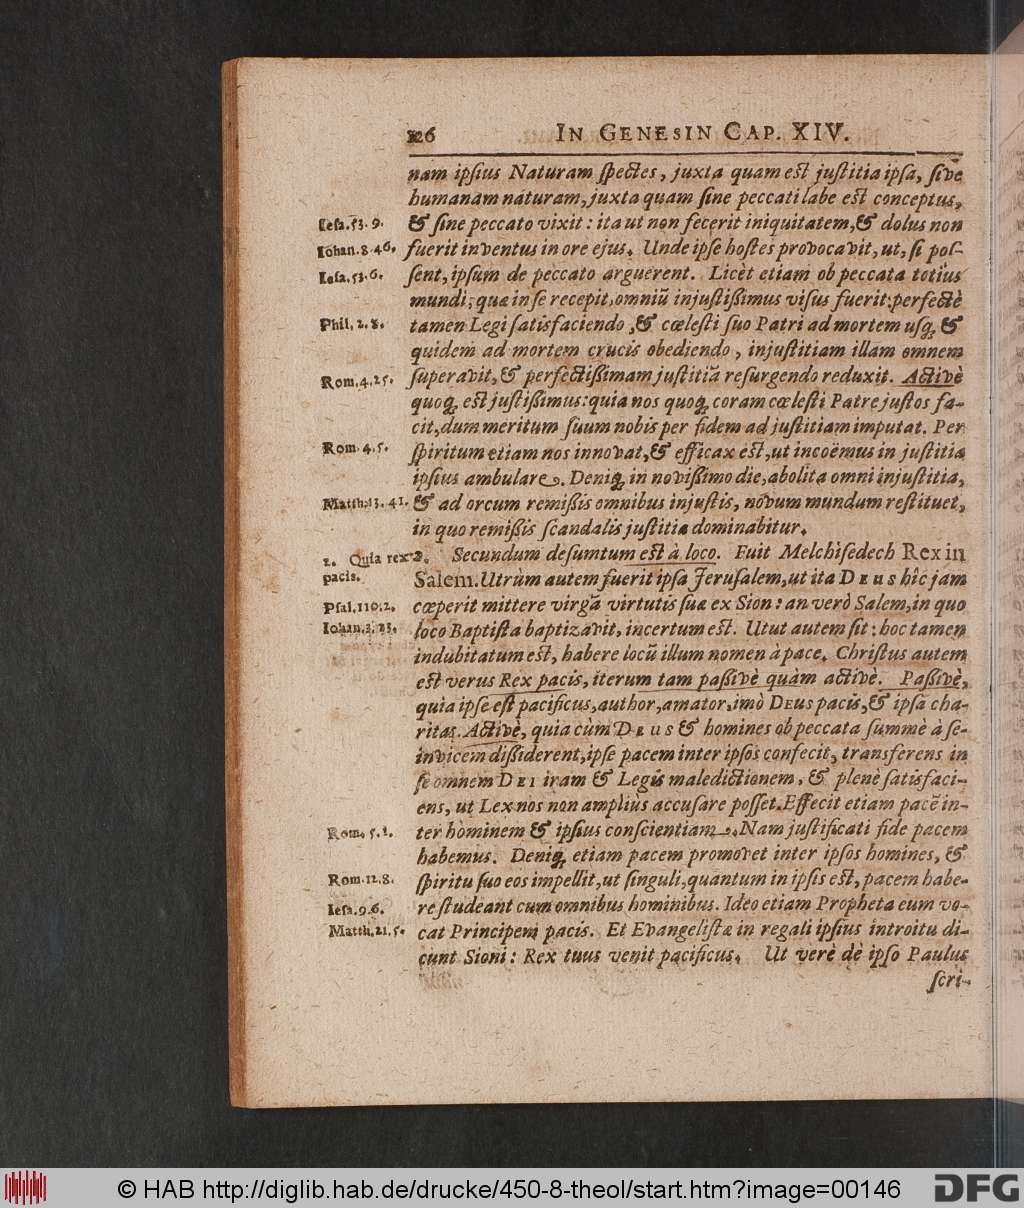 126 IN GENESIN CAP. XIV.
nam ipſius Naturam ſpectes, juxta quam est juſtitia ipſa, ſive
humanam naturam, juxta quam ſine peccati labe est conceptus,
Ieſa. 53. 9. & ſine peccato vixit: ita ut non fecerit iniquitatem, & dolus non
Iohan. 8. 46. fuerit inventus in ore ejus. Unde ipſe hoſtes provocavit, ut, ſi poſ-
Ieſa. 53. 6. ſent, ipſum de peccato arguerent. Licèt etiam ob peccata totius
mundi, quæ in ſe recepit, omniũ injuſtißimus viſus fuerit: perfectè
Phil. 2. 8. tamen Legi ſatisfaciendo, & cœleſti ſuo Patri ad mortem uſq; &
quidem ad mortem crucis obediendo, injuſtitiam illam omnem
Rom. 4. 25. ſuperavit, & perfectißimam juſtitiã reſurgendo reduxit. Activè
quoq; est juſtißimus: quia nos quoq; coram cœleſti Patre juſtos fa-
cit, dum meritum ſuum nobis per fidem ad juſtitiam imputat. Per
Rom. 4. 5. ſpiritum etiam nos innovat, & efficax est, ut incoëmus in juſtitia
ipſius ambulare. Deniq; in noviſſimo die, abolita omni injuſtitia,
Matth. 13. 41. & ad orcum remißis omnibus injuſtis, novum mundum reſtituet,
in quo remißis ſcandalis juſtitia dominabitur.
2. Quia rex pacis. 2. Secundum deſumtum est à loco. Fuit Melchiſedech Rex in
Salem. Utrùm autem fuerit ipſa Jeruſalem, ut ita DEUS hîc jam
Pſal. 110. 2. cœperit mittere virgã virtutis ſuæ ex Sion: an verò Salem, in quo
Iohan. 3. 23. loco Baptiſta baptizavit, incertum est. Utut autem ſit: hoc tamen
indubitatum est, habere locũ illum nomen à pace. Chriſtus autem
est verus Rex pacis, iterum tam paßivè quàm activè. Paßivè,
quia ipſe eſt pacificus, author, amator, imò DEUS pacis, & ipſa cha-
ritas. Activè, quia cùm DEUS & homines ob peccata ſummè à ſe-
invicem dißiderent, ipſe pacem inter ipſos confecit, transferens in
ſe omnem DEI iram & Legis maledictionem, & plenè ſatisfaci-
ens, ut Lex nos non ampliùs accuſare poſſet. Effecit etiam pacẽ in-
Rom. 5. 1. ter hominem & ipſius conſcientiam. Nam juſtificati fide pacem
habemus. Deniq; etiam pacem promovet inter ipſos homines, &
Rom. 12. 8. ſpiritu ſuo eos impellit, ut ſinguli, quantum in ipſis est, pacem habe-
Ieſa. 9. 6. re ſtudeant cum omnibus hominibus. Ideo etiam Propheta eum vo-
Matth. 21. 5. cat Principem pacis. Et Evangeliſtæ in regali ipſius introitu di-
cunt Sioni: Rex tuus venit pacificus. Ut verè de ipſo Paulus
ſcri-
© HAB http://diglib.hab.de/drucke/450-8-theol/start.htm?image=00146 DFG